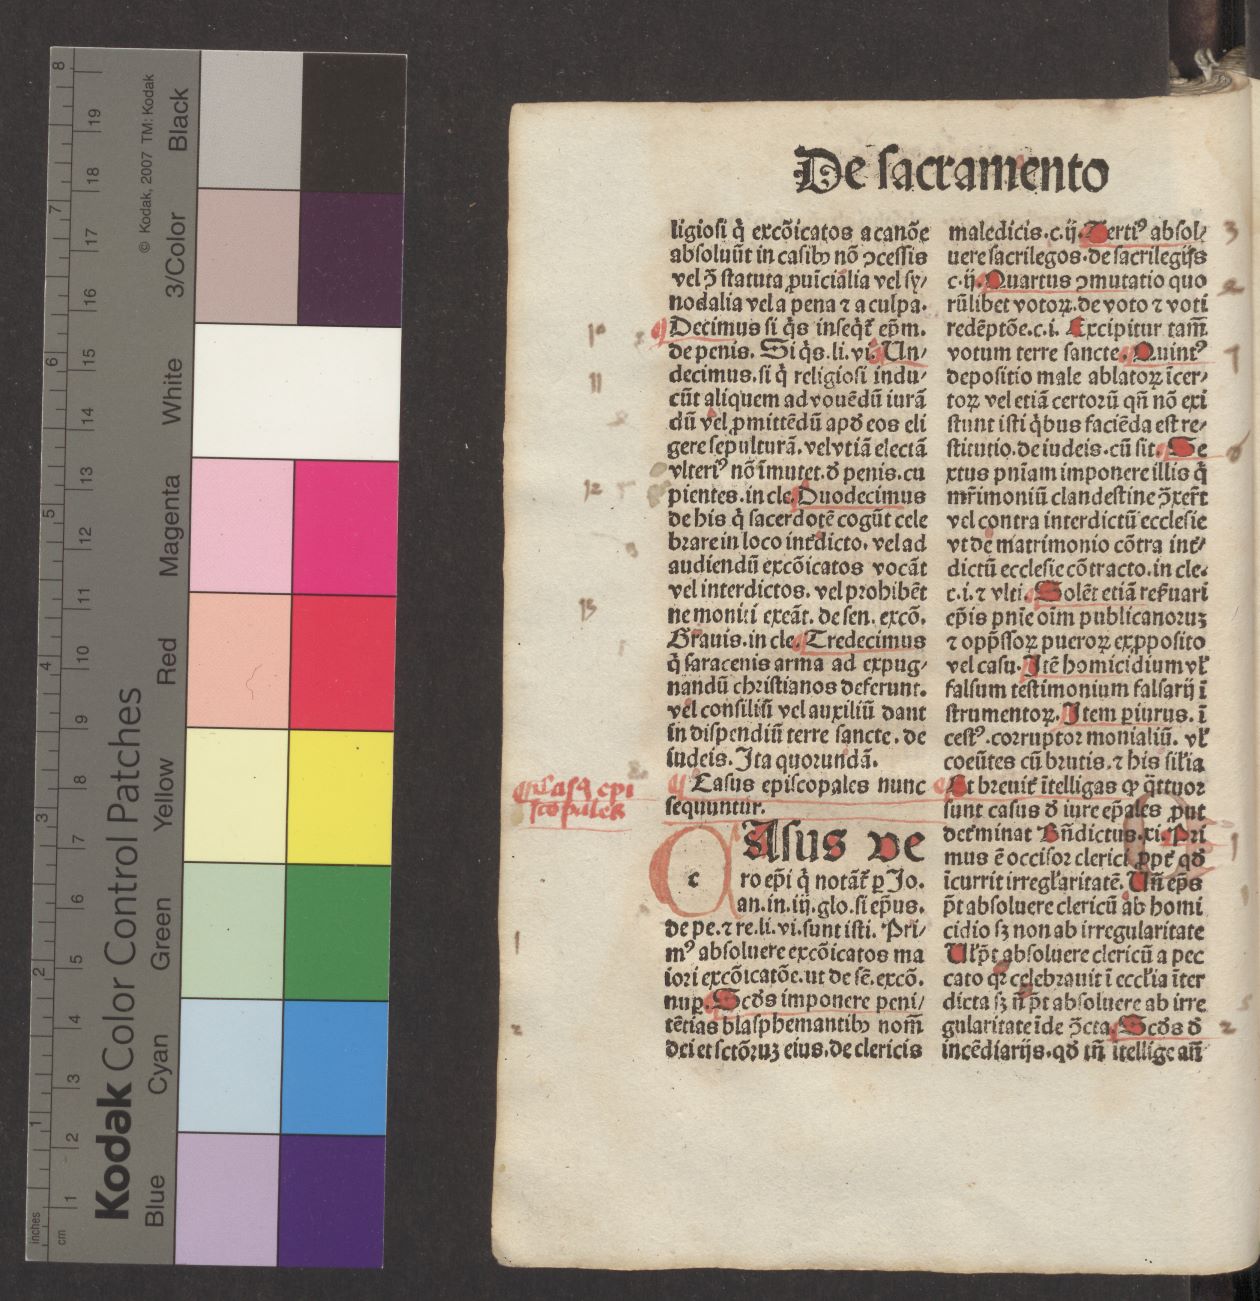 De sacramento
ligiosi q̇ excōicatos a canōe
absoluūt in casibꝰ nō ꝯcessis
vel ꝯ̄ statuta ꝓuīcialia vel sy/
nodalia vel a pena ⁊ a culpa.
¶Decimus si q̇s inseq̇t̄ ep̄m.
de penis. Si q̇s. li. vi. ¶Un/
decimus. si q̇ religiosi indu/
cūt aliquem ad vouēdū iurā
dū vel ꝓmittēdū apđ eos eli
gere sepulturā. vel vt iā electā
vlteriꝰ nō īmutet. đ penis. cu
pientes. in cle. ¶Duodecimus
de his q̇ sacerdotē cogūt cele
brare in loco int̄dicto. vel ad
audiendū excōicatos vocāt
vel interdictos. vel prohibēt
ne moniti exeāt. de sen. excō.
Grauis. in cle. ¶Tredecimus
q̇ saracenis arma ad expug/
nandū christianos deferunt.
vel consiliū vel auxiliū dant
in dispendiū terre sancte. de
iudeis. Ita quorundā.
¶ Casus episcopales nunc
sequuntur.
c
Asus ve
ro ep̄i q̇ notāt̄ ꝑ Jo.
an. in. iij. glo. si ep̄us.
de pe. ⁊ re. li. vi. sunt isti. Pri/
mꝰ absoluere excōicatos ma
iori excōicatōe. ut de sē. excō.
nuꝑ. ¶Scđs imponere peni/
tētias blasphemantibꝰ nom̄
dei et sctōruꝫ eius. de clericis
maledicis. c. ij. Tertiꝰ absol/
uere sacrilegos. de sacrilegijs
c. ij. ¶Quartus ꝯmutatio quo
rūlibet votoꝝ. de voto ⁊ voti
redēptōe. c. i. Excipitur tam̄
votum terre sancte. ¶Quintꝰ
depositio male ablatoꝝ īcer/
toꝝ vel etiā certorū qn̄ nō exi
stunt isti q̇bus faciēda est re/
stitutio. de iudeis. cū sit. ¶Se
xtus pn̄iam imponere illis q̇
mr̄imoniū clandestine ꝯ̄xer̄t
vel contra interdictū ecclesie
vt de matrimonio cōtra int̄/
dictū ecclesie cōtracto. in cle.
c. i. ⁊ vlti. ¶Solēt etiā ref̄uari
ep̄is pn̄ie oīm publicanoruꝫ
⁊ opp̄ssoꝝ pueroꝝ ex ꝓposito
vel casu. ¶Itē homicidium vł
falsum testimonium falsarij ī
strumentoꝝ. ¶Item ꝑiurus. ī
cestꝰ. corruptor monialiū. vł
coeūtes cū brutis. ⁊ his silia
¶Et breuit̄ ītelligas ꝙ q̄ttuor
sunt casus đ iure ep̄ales ꝓut
det̄minat Bn̄dictus. xi. ¶Pri
mus ē occisor clerici ꝓpt̄ qđ
īcurrit irregłaritatē. Un̄ ep̄s
p̄t absoluere clericū ab homi
cidio sꝫ non ab irregularitate
Uł p̄t absoluere clericū a pec
cato qꝛ celebrauit ī eccłia īter
dicta sꝫ n̄ p̄t absoluere ab irre
gularitate īde ꝯ̄cta. ¶Scđs đ
incēdiarijs. qđ tn̄ itellige an̄
11
12
13
1
2
3
1
2
Kodak Color Control Patches
© Kodak, 2007 TM: Kodak
Blue Cyan Green Yellow Red Magenta White 3/Color Black
inches 1 2 3 4 5 6 7 8
cm 1 2 3 4 5 6 7 8 9 10 11 12 13 14 15 16 17 18 19